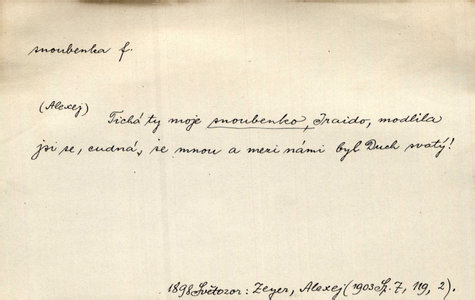 snoubenka f.
(Alexej) Tichá ty moje snoubenko, Iraido, modlila
jsi se, cudná, se mnou a mezi námi byl Duch svatý!
1898 Světozor: Zeyer, Alexej (1903 Sp. 7, 119, 2).